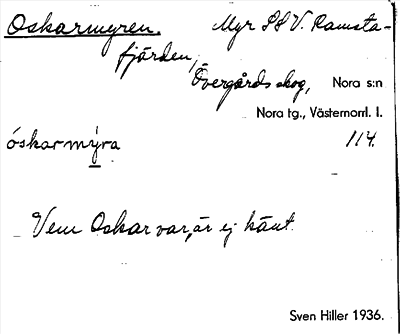 Oskarmyren. Myr SSV. Ramsta-
fjärden,
Övergårds skog, Nora s:n
Nora tg., Västernorrl. l.
óskarmýra 114.
Vem Oskar var, är ej känt.
Sven Hiller 1936.